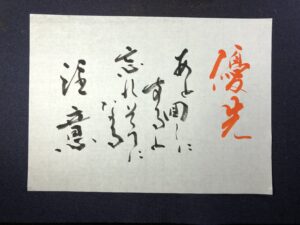 優先
あと回しに
すると
忘れそうに
なる
注意